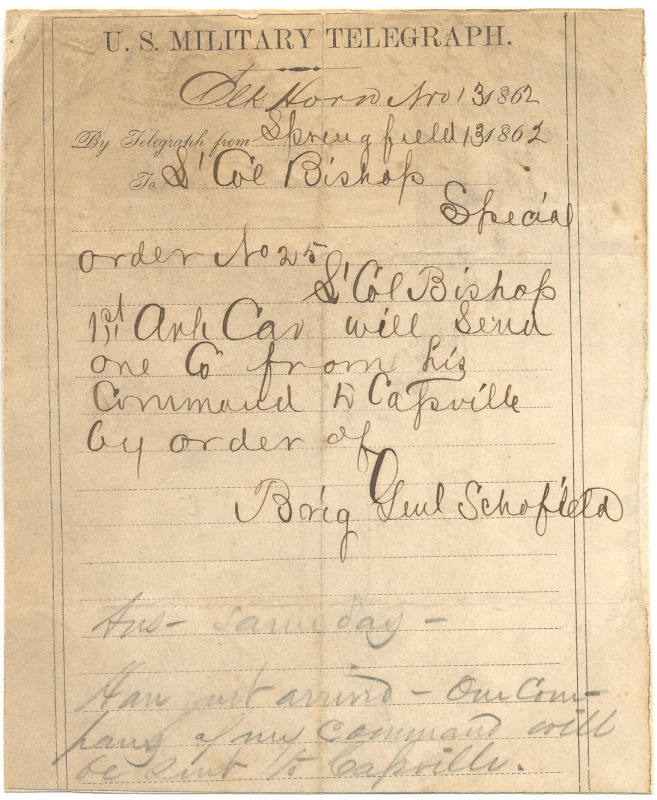 U. S. MILITARY TELEGRAPH.
Elk Horn Nov 13 1862
By Telegraph from Springfield 13 1862
To Lt Col Bishop
Special
order No 25
Lt Col Bishop
1st Ark Cav will send
one Co from his
Command to Cassville
by order of
Brig Genl Schofield
Ans - same day -
Have just arrived - One Com-
pany of my command will
be sent to Cassville.